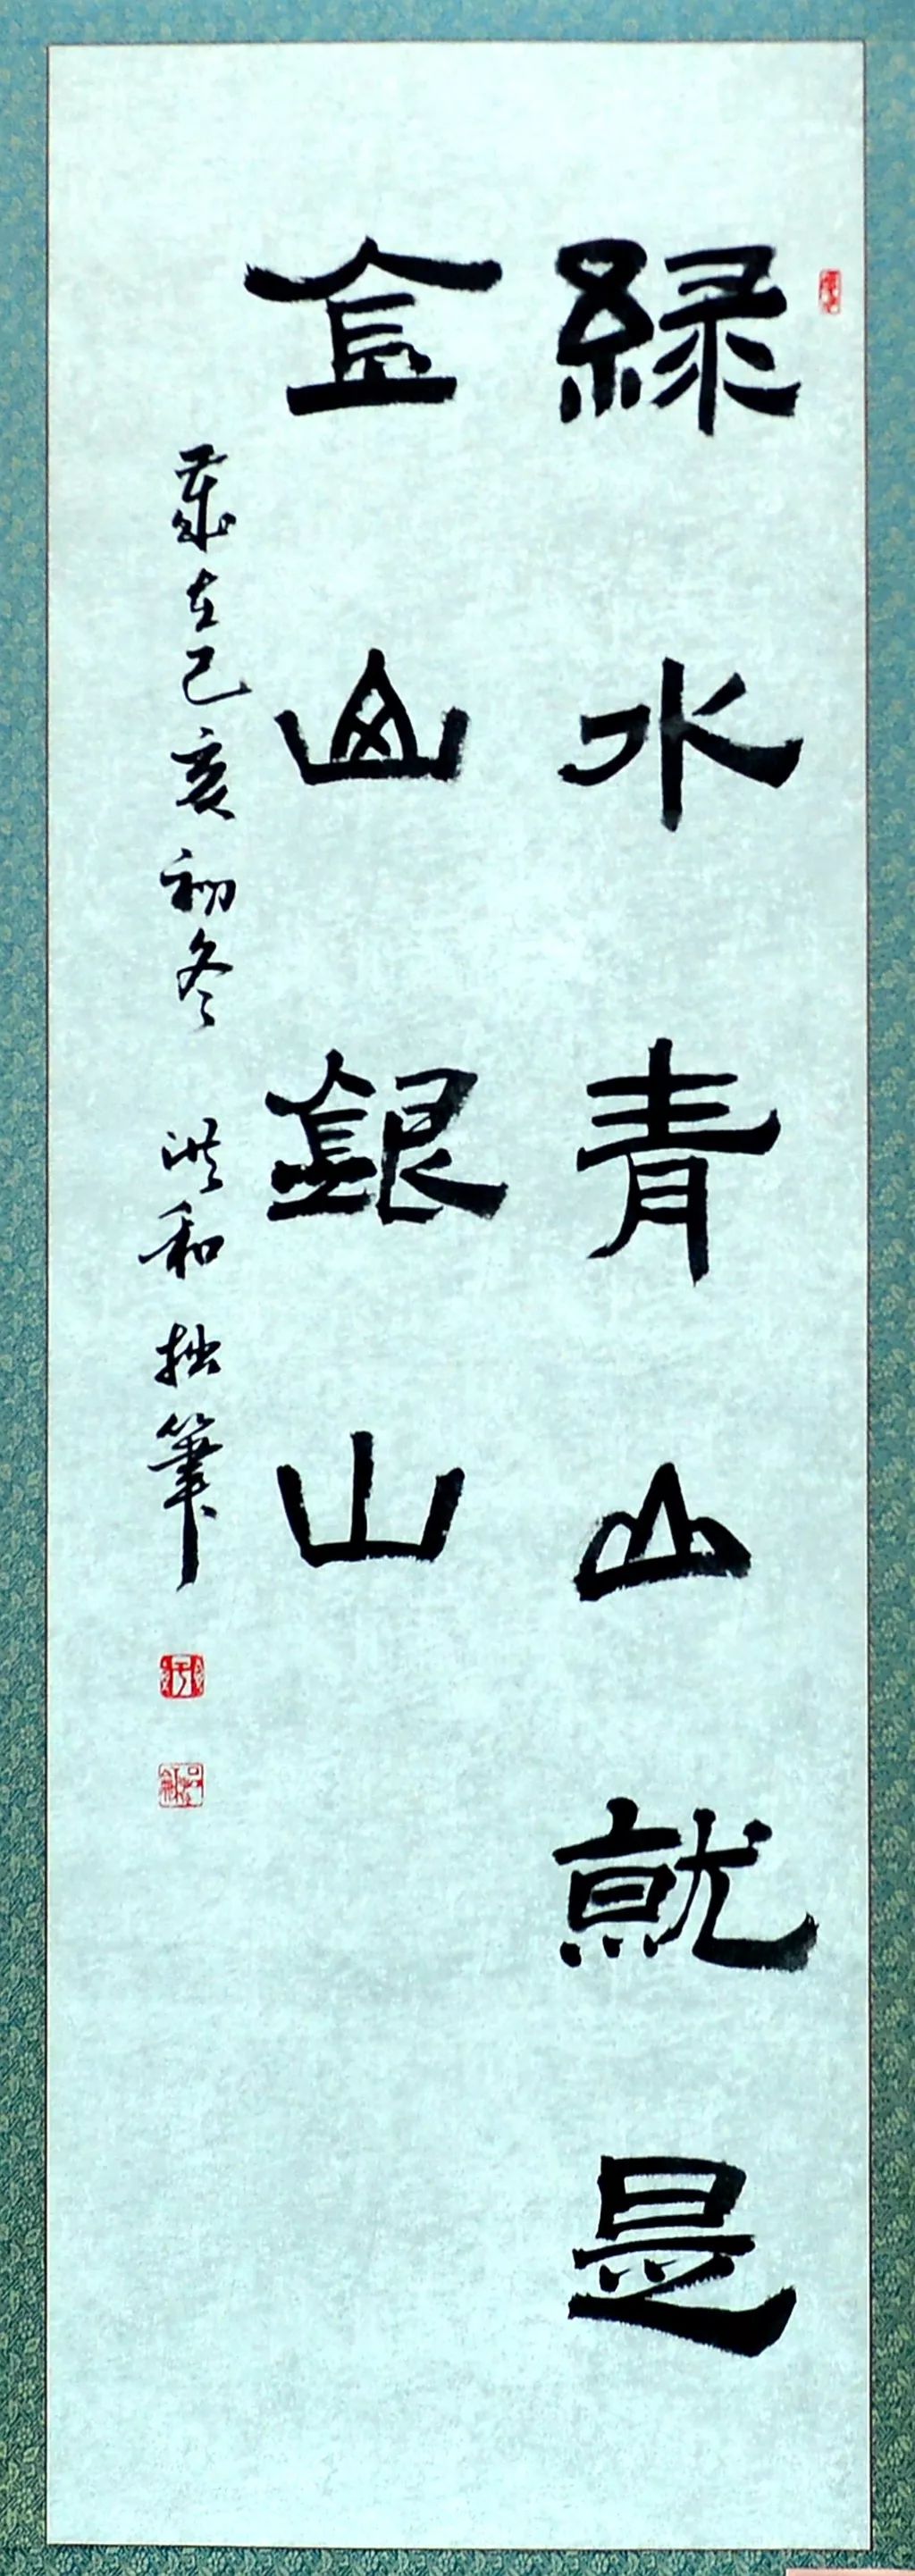 緑水青山就是
金山銀山
歲在己亥初冬 洪和拙筆